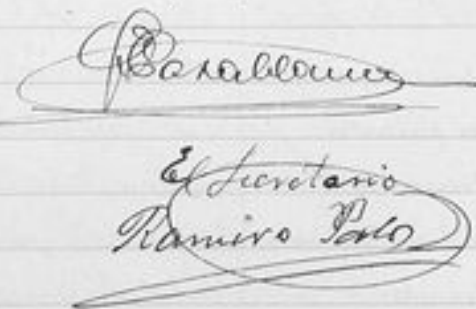 Casablanca
El Secretario
Ramiro Palos